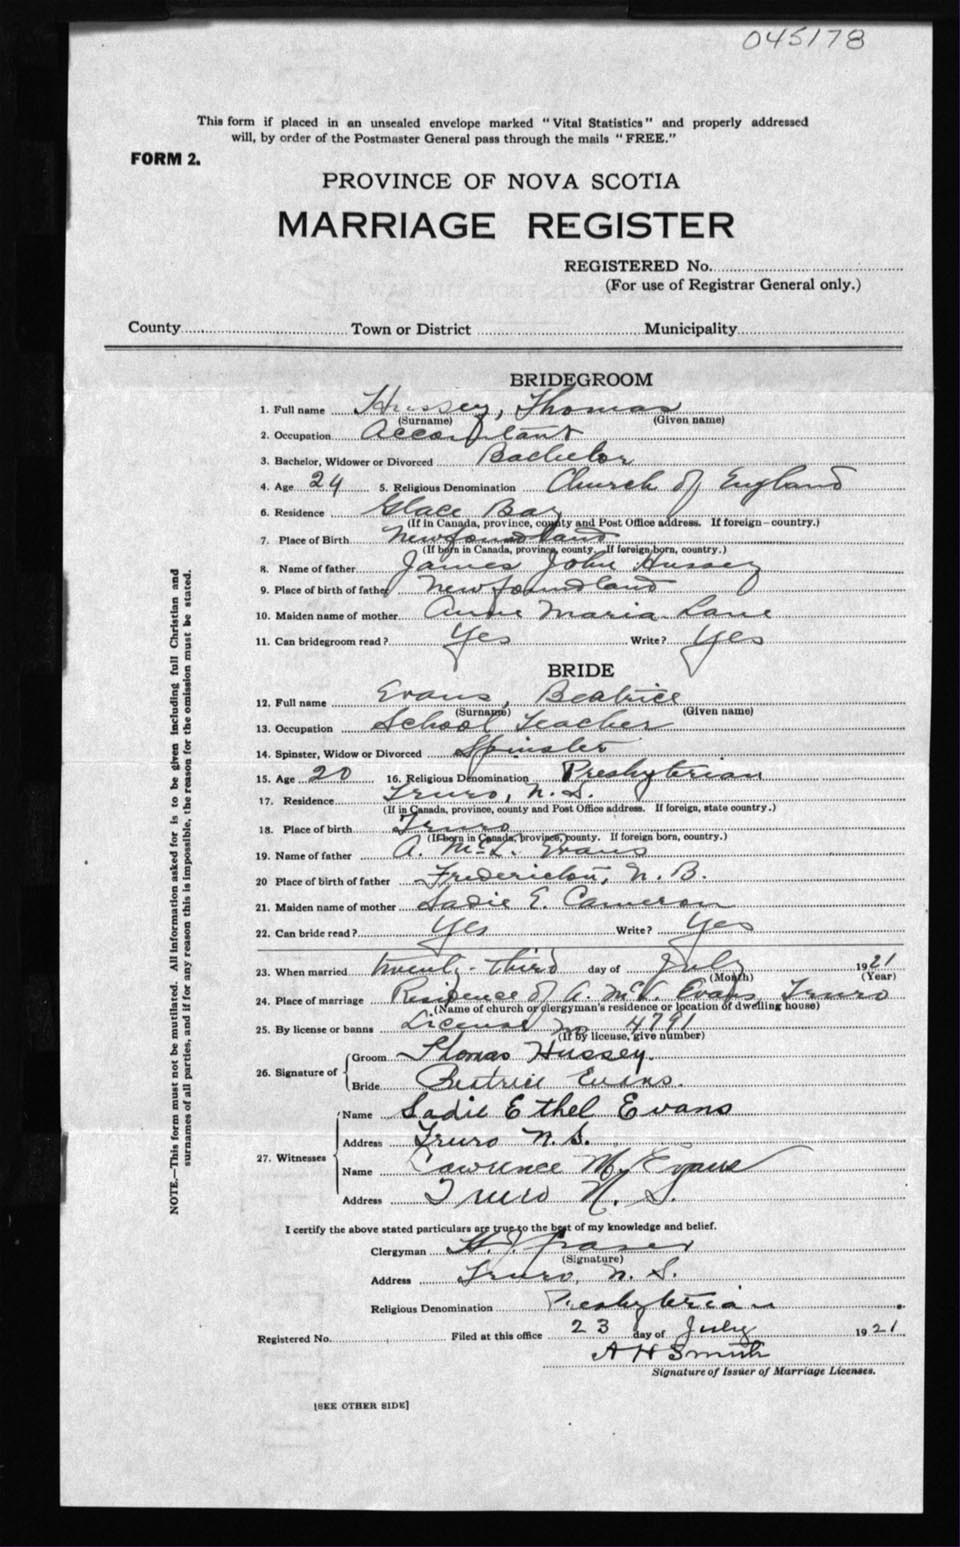 045178
This form if placed in an unsealed envelope marked "Vital Statistics" and properly addressed
will, by order of the Postmaster General pass through the mails "FREE."
FORM 2.
PROVINCE OF NOVA SCOTIA
MARRIAGE REGISTER
REGISTERED No.
(For use of Registrar General only.)
County Town or District Municipality
BRIDEGROOM
1. Full name Hussey, Thomas
(Surname) (Given name)
2. Occupation Accountant
3. Bachelor, Widower or Divorced Bachelor
4. Age 24 5. Religious Denomination Church of England
6. Residence Glace Bay
(If in Canada, province, county and Post Office address. If foreign—country.)
7. Place of Birth Newfoundland
(If born in Canada, province, county. If foreign born, country.)
8. Name of father James John Hussey
9. Place of birth of father Newfoundland
10. Maiden name of mother Anne Maria Lane
11. Can bridegroom read? Yes Write? Yes
BRIDE
12. Full name Evans, Beatrice
(Surname) (Given name)
13. Occupation School Teacher
14. Spinster, Widow or Divorced Spinster
15. Age 20 16. Religious Denomination Presbyterian
17. Residence Truro, N.S.
(If in Canada, province, county and Post Office address. If foreign, state country.)
18. Place of birth Truro
(If born in Canada, province, county. If foreign born, country.)
19. Name of father A. McL. Evans
20 Place of birth of father Fredericton, N. B.
21. Maiden name of mother Sadie E. Cameron
22. Can bride read? Yes Write? Yes
23. When married twenty-third day of July 1921
(Month) (Year)
24. Place of marriage Residence of A. Evans, Truro
(Name of church or clergyman's residence or location of dwelling house)
25. By license or banns License No 4791
(If by license, give number)
26. Signature of Groom Thomas Hussey.
Bride Beatrice Evans.
27. Witnesses Name Sadie Ethel Evans
Address Truro N.S.
Name Lawrence Evans
Address Truro N. S.
I certify the above stated particulars are true to the best of my knowledge and belief.
Clergyman H. J. Fraser
(Signature)
Address Truro, N. S.
Religious Denomination Presbyterian
Registered No. Filed at this office 23 day of July 1921
A H Smith
Signature of Issuer of Marriage Licenses.
[SEE OTHER SIDE]
NOTE.—This form must not be mutilated. All information asked for is to be given including full Christian and
surnames of all parties, and if for any reason this is impossible, the reason for the omission must be stated.